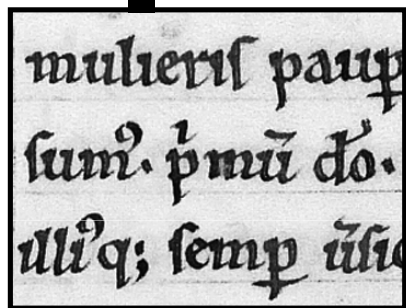 mulieris paup̲
ſumꝰ. p̍mū do̵.
illiꝰq; ſemꝑ ūſic